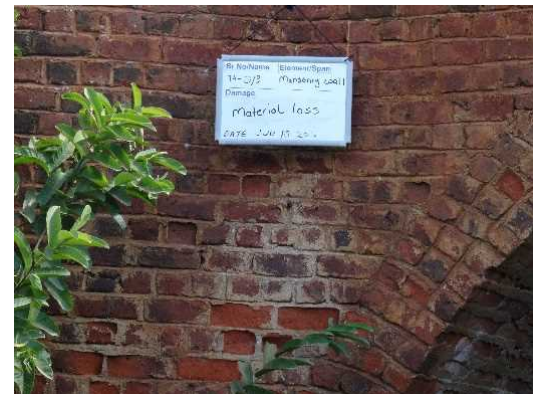 Br No/Name Element/Span
Masonary wall
Damage
Material loss
DATE JUN